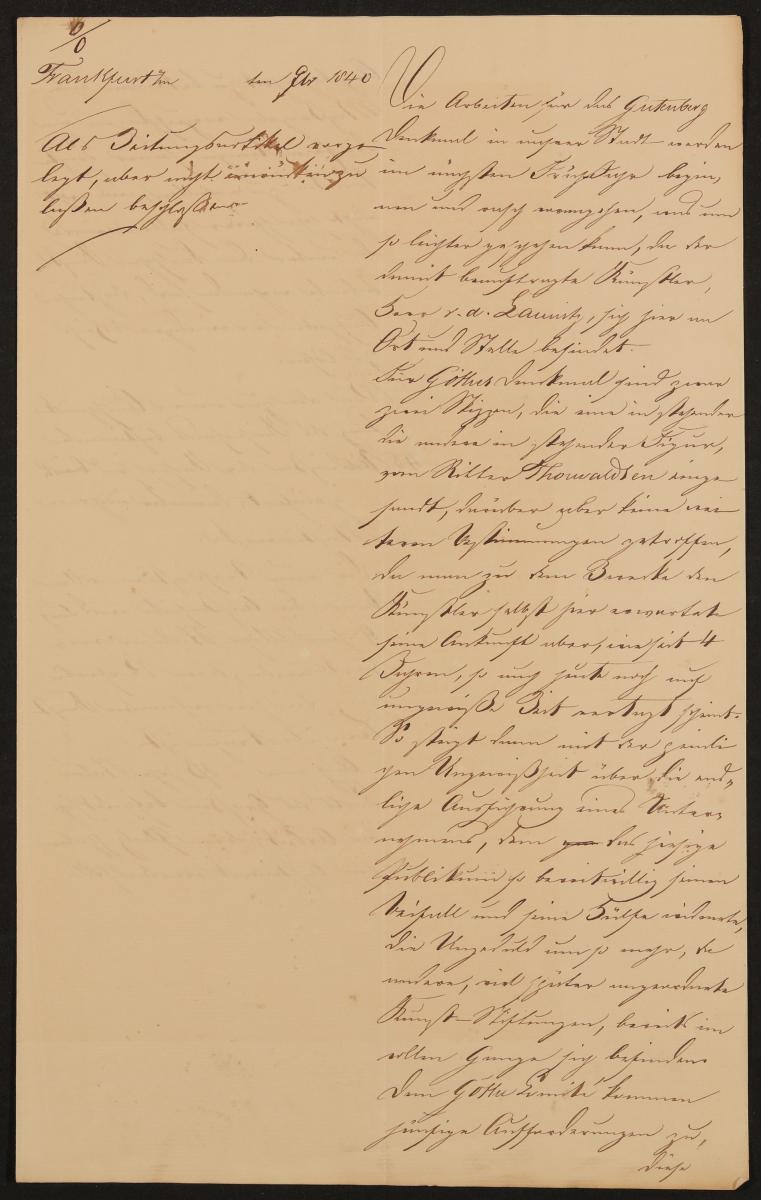 %
Frankfurt a/m den 9br 1840
Als Zeitungsartikel vorge
legt, aber nicht zu
lassen beschlossen
Die Arbeiten für das Gutenberg
Denkmal in unserer Stadt werden
im nächsten Frühjahr begin,
nen und rasch vorangehen, was um
so leichter geschehen kann, da der
damit beauftragte Künstler,
Herr v. d. Launitz, sich hier an
Ort und Stelle befindet.
Für Göthes Denkmal sind zwar
zwei Skizzen, die eine in stehender
die andere in Figur,
vom Ritter Thorwaldsen einge
sandt, darüber aber keine wei
teren Bestimmungen getroffen,
da man zu dem Zwecke den
Künstler selbst hier erwartete
seine Ankunft aber, wie seit 4
Jahren, so auch heute noch auf
ungewisse Zeit vertagt scheint.
So steigt denn mit der peinli
chen Ungewißheit über die end„
liche Ausführung eines Unter„
nehmens, dem das hiesige
Publikum so bereitwillig seinen
Beifall und seine Hülfe
die Ungeduld um so mehr, da
andere, viel später angeordnete
Kunst-Stiftungen, bereits im
vollen Gange sich befinden.
Dem Göthe Comité kommen
häufige Aufforderungen zu,
diese